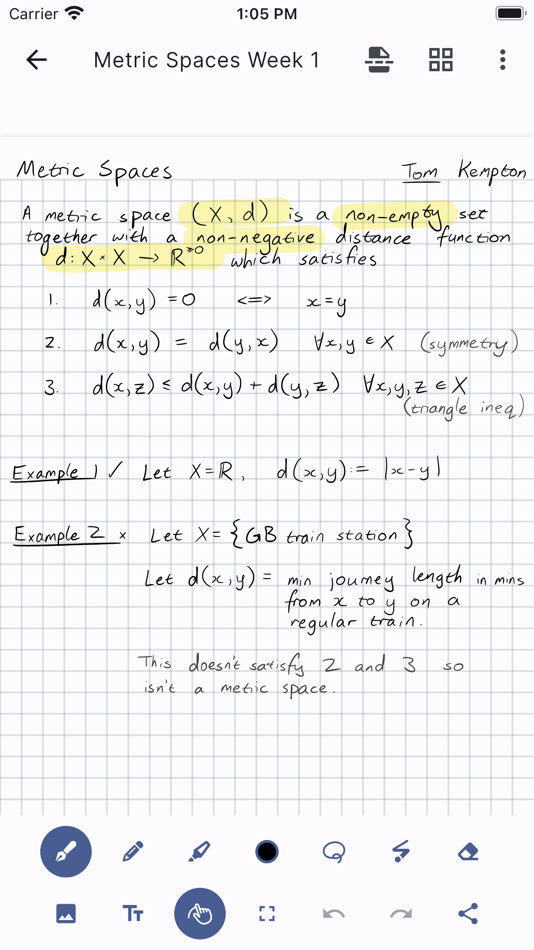 Carrier 1:05 PM
Metric Spaces Week 1
Metric Spaces Tom Kempton
A metric space (X, d) is a non-empty set
together with a non-negative distance function
d: X × X → ℝ≥0 which satisfies
1. d(x,y) = 0 <=> x = y
2. d(x,y) = d(y,x) ∀x,y ∈ X (symmetry)
3. d(x,z) ≤ d(x,y) + d(y,z) ∀x,y,z ∈ X
(triangle ineq)
Example 1 ✓ Let X = ℝ, d(x,y) := |x-y|
Example 2 × Let X = {GB train station}
Let d(x,y) = min journey length in mins
from x to y on a
regular train.
This doesn't satisfy 2 and 3 so
isn't a metic space.
TT